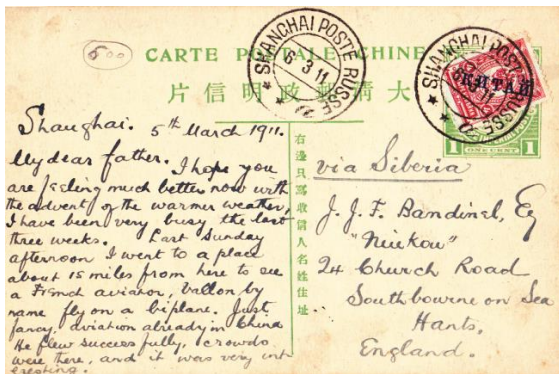 600
CARTE POSTALE CHINE
SHANGHAI POSTE RUSSE
6 3 11
SHANGHAI POSTE RUSSE
КИТАЙ
片信明政郵清大
1 ONE CENT 1
右邊只寫收信人名姓住址
Shanghai. 5th March 1911.
My dear father. I hope you
are feeling much better now with
the advent of the warmer weather,
I have been very busy the last
three weeks. Last Sunday
afternoon I went to a place
about 15 miles from here to see
a French aviator, Vallon by
name fly on a biplane. Just
fancy, aviation already in China
He flew successfully, crowds
were there, and it was very int
eresting.
via Siberia
J. J. F. Bandinel, Esq
"Niukow"
24 Church Road
Southbourne on Sea
Hants.
England.